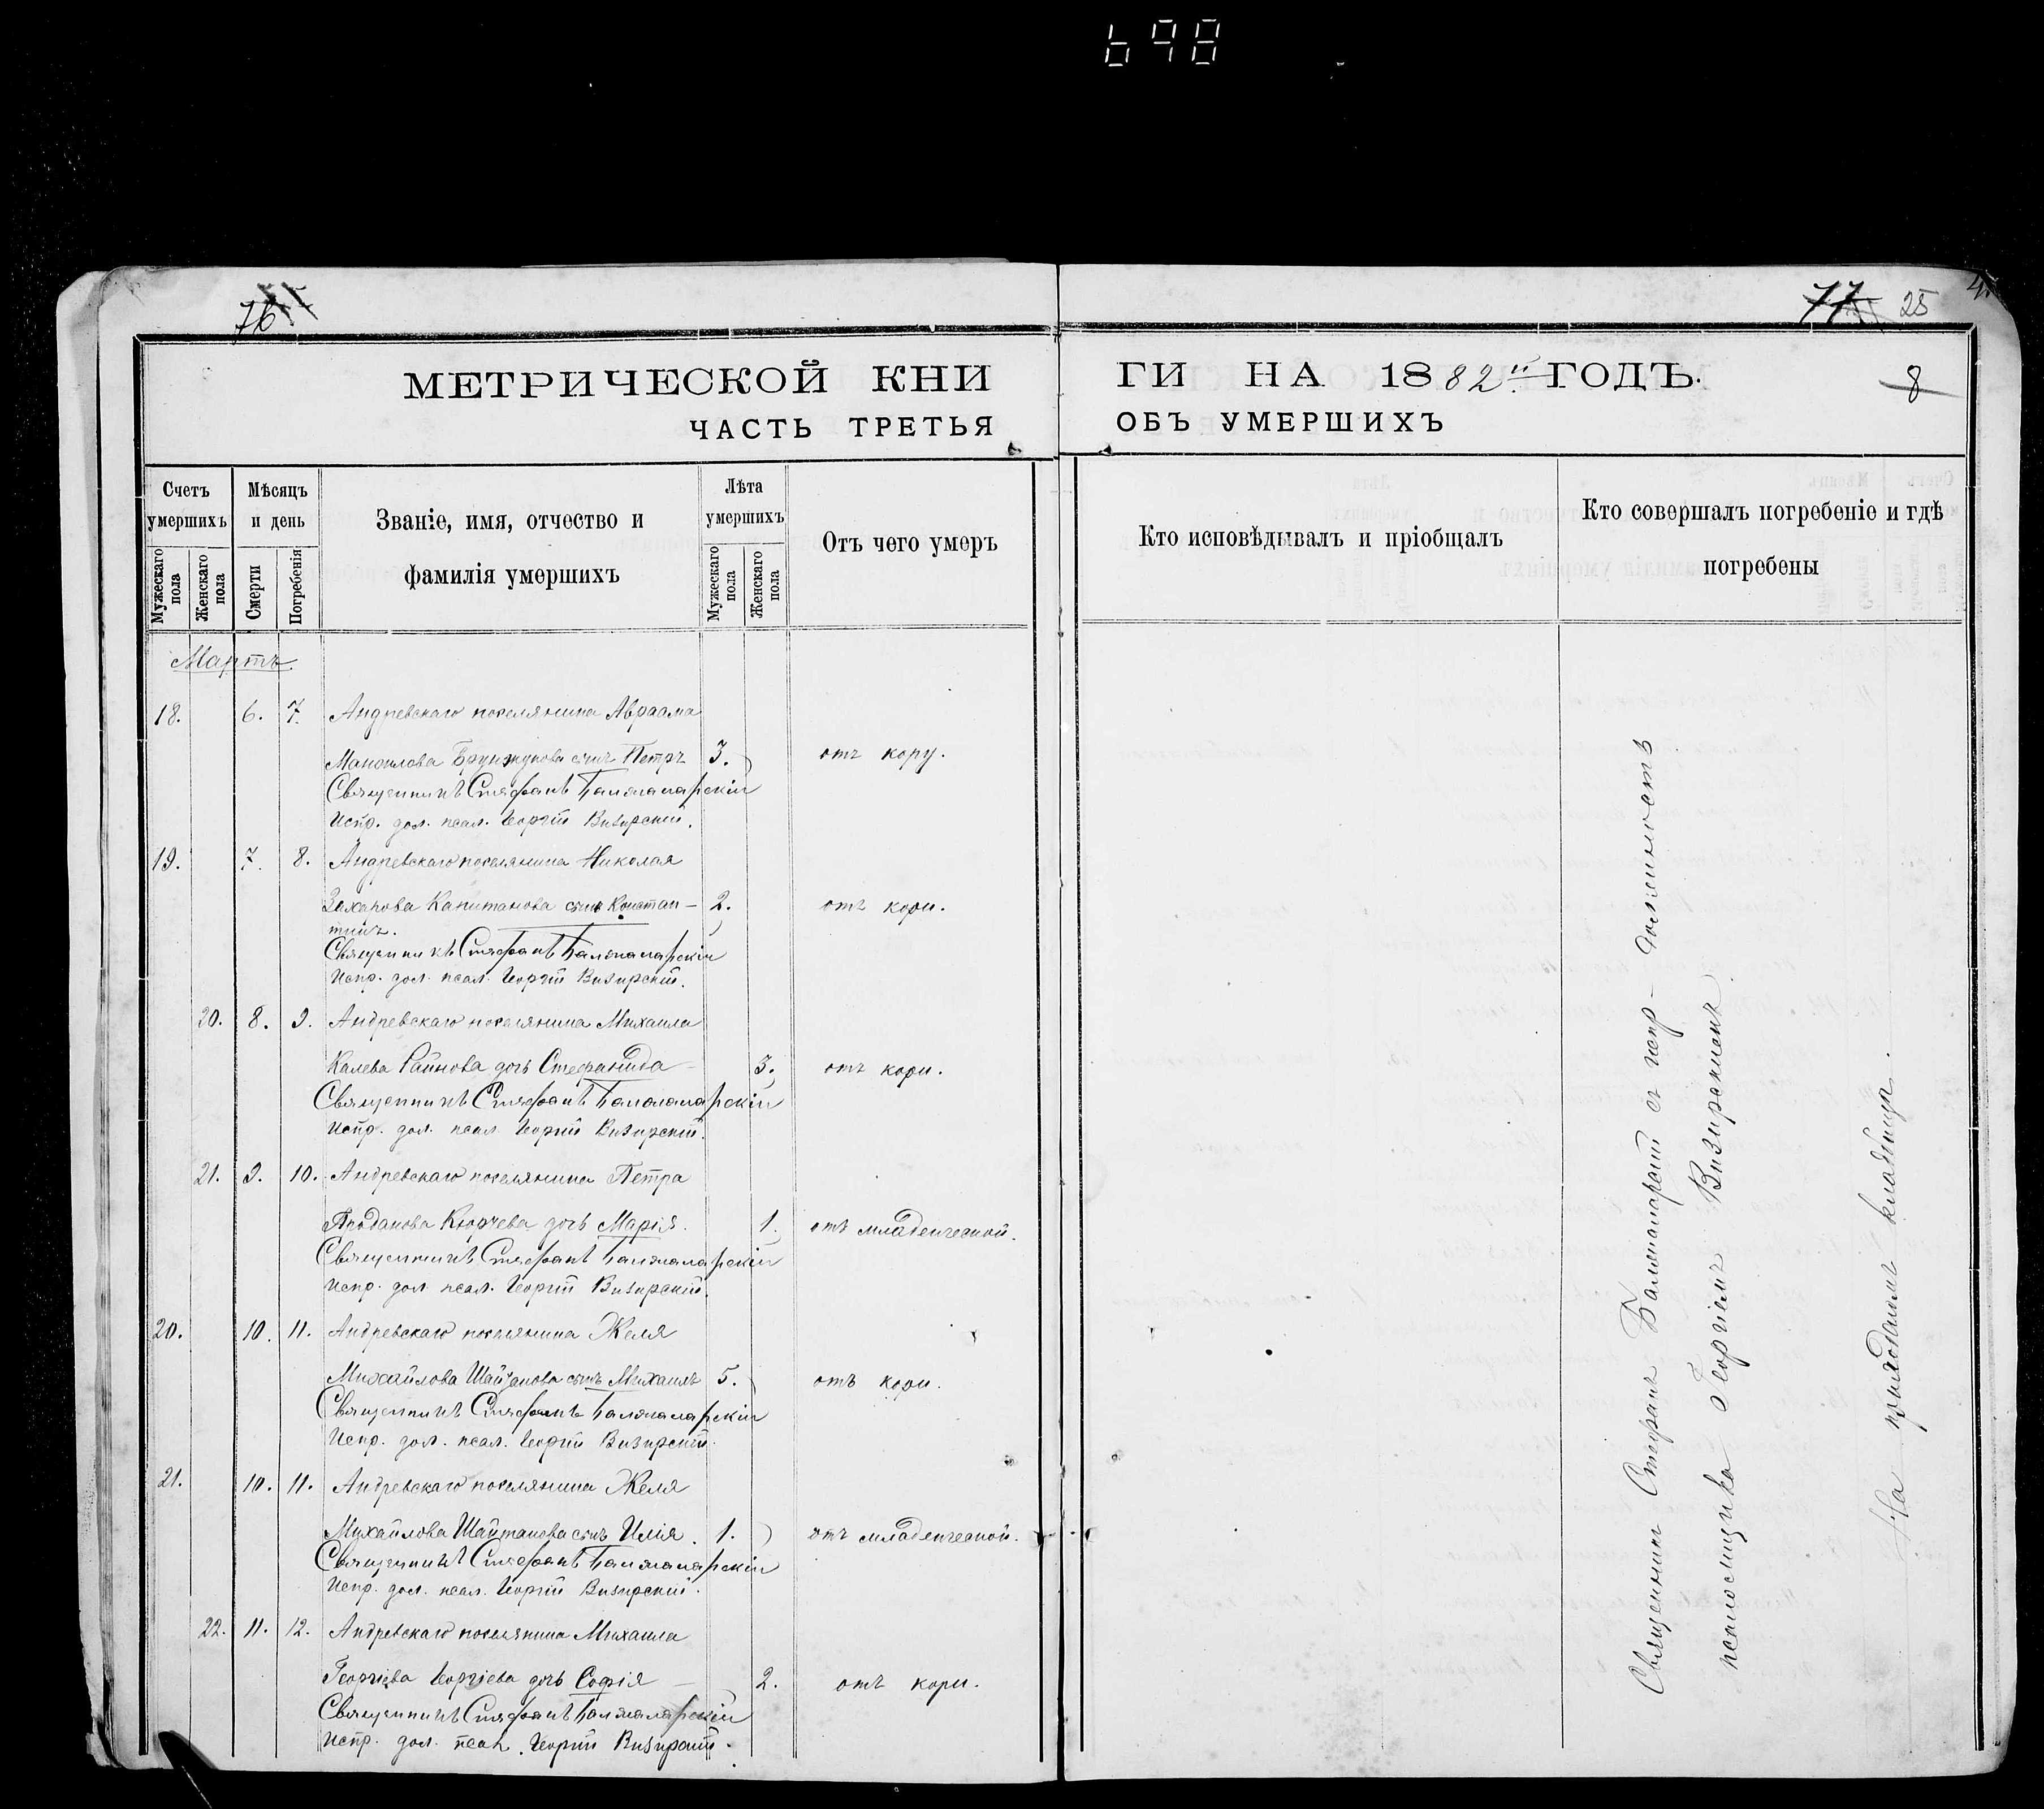 698
76
77 25
МЕТРИЧЕСКОЙ КНИ
ЧАСТЬ ТРЕТЬЯ
ГИ НА 1882й ГОДЪ.
8
ОБЪ УМЕРШИХЪ
Счетъ умершихъ
Мужескаго пола
Женскаго пола
Мѣсяцъ и день
Смерти
Погребенія
Званіе, имя, отчество и
фамилія умершихъ
Лѣта умершихъ
Мужескаго пола
Женскаго пола
Отъ чего умеръ
Кто исповѣдывалъ и пріобщалъ
Кто совершалъ погребеніе и гдѣ
погребены
Мартъ.
18. 6. 7. Андревскаго поселянина Авраама
Манолова сынъ Петръ 3. отъ кору.
Священникъ Стефанъ
Испр. дол. псал. Георгій Визирскій.
19. 7. 8. Андревскаго поселянина Николая
Захарова Капитанова сынъ Констан- 2. отъ кори.
тинъ.
Священникъ Стефанъ
Испр. дол. псал. Георгій Визирскій.
20. 8. 9. Андревскаго поселянина Михаила
Калева Райнова дочь Стефанида 3. отъ кори.
Священникъ Стефанъ
Испр. дол. псал. Георгій Визирскій.
21. 9. 10. Андревскаго поселянина Петра
Проданова Кюрчева дочь Марія. 1. отъ младенческой.
Священникъ Стефанъ
Испр. дол. псал. Георгій Визирскій.
20. 10. 11. Андревскаго поселянина Желя
Михайлова Шайтанова сынъ Михаилъ 5. отъ кори.
Священникъ Стефанъ
Испр. дол. псал. Георгій Визирскій.
21. 10. 11. Андревскаго поселянина Желя
Михайлова Шайтанова сынъ Илія. 1. отъ младенческой.
Священникъ Стефанъ
Испр. дол. псал. Георгій Визирскій.
22. 11. 12. Андревскаго поселянина Михаила
Георгіева Георгіева дочь Софія 2. отъ кори.
Священникъ Стефанъ
Испр. дол. псал. Георгій Визирскій.
Священникъ Стефанъ съ испр. должность
псаломщика Георгіемъ Визирскимъ
На приходскомъ кладбищѣ.